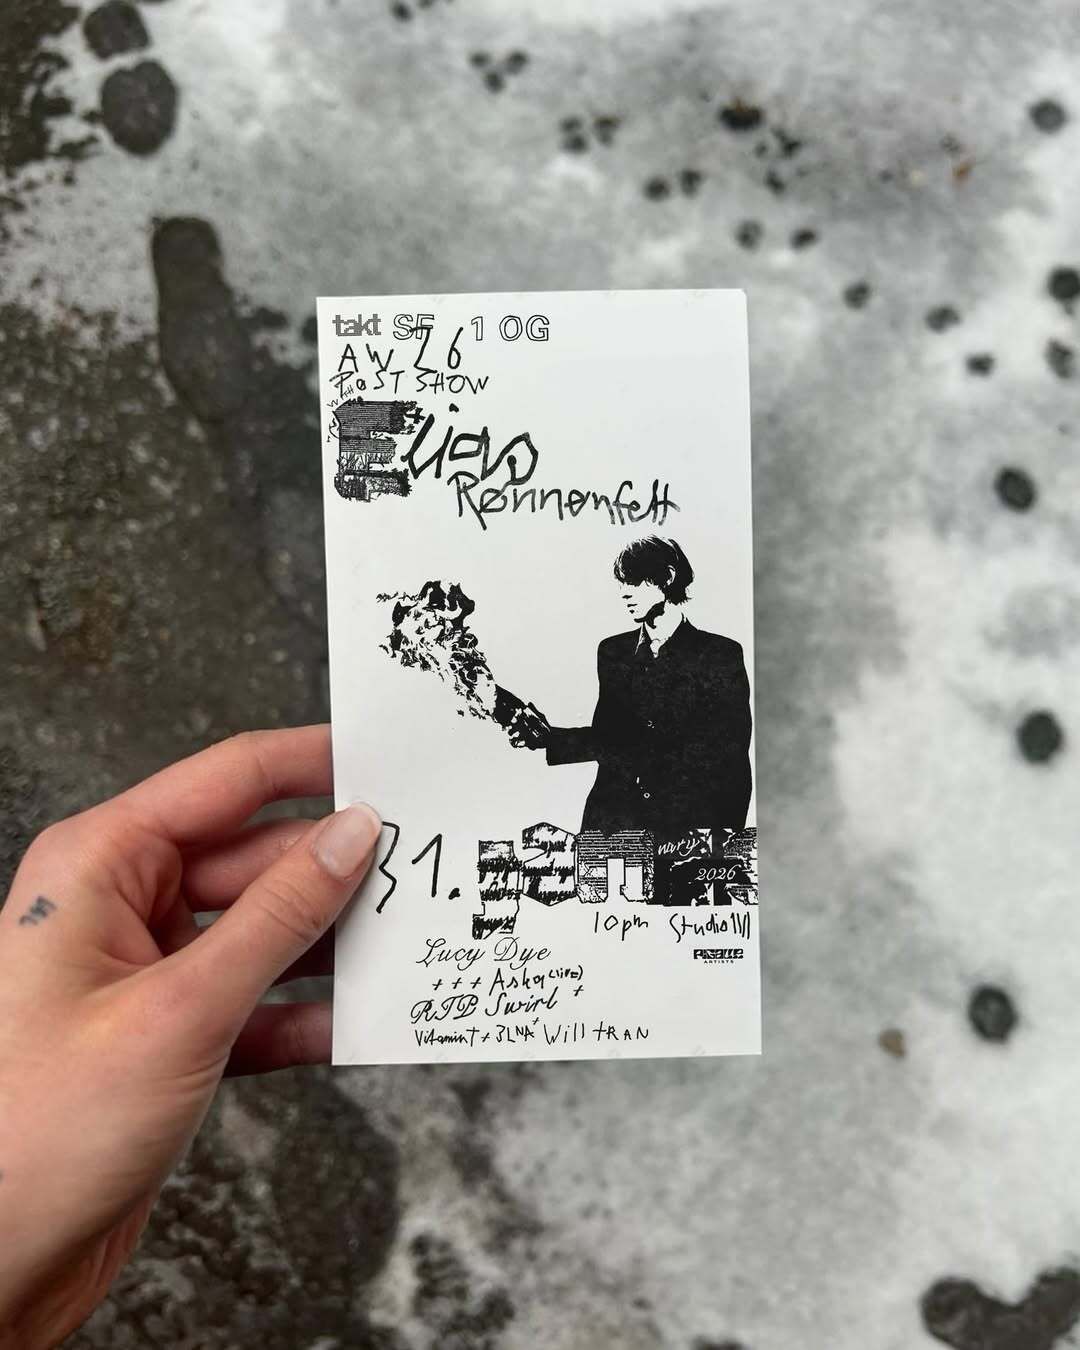 takt SF 1 OG
AW 26
POST SHOW
WITH
Elias
Rønnenfelt
31. January
2026
10pm Studio1111
PIGALLE
ARTISTS
Lucy Dye
+++ Aska (live)
RIB Swirl +
VitaminT + 3LNA + Will tRAN